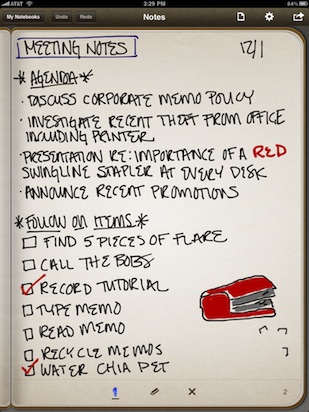 AT&T 3:29 PM 84%
My Notebooks Undo Redo Notes
MEETING NOTES 12/1
*AGENDA*
· DISCUSS CORPORATE MEMO POLICY
· INVESTIGATE RECENT THEFT FROM OFFICE
INCLUDING PRINTER
· PRESENTATION RE: IMPORTANCE OF A RED
SWINGLINE STAPLER AT EVERY DESK
· ANNOUNCE RECENT PROMOTIONS
*FOLLOW ON ITEMS*
FIND 5 PIECES OF FLARE
CALL THE BOBS
RECORD TUTORIAL
TYPE MEMO
READ MEMO
RECYCLE MEMOS
WATER CHIA PET
2